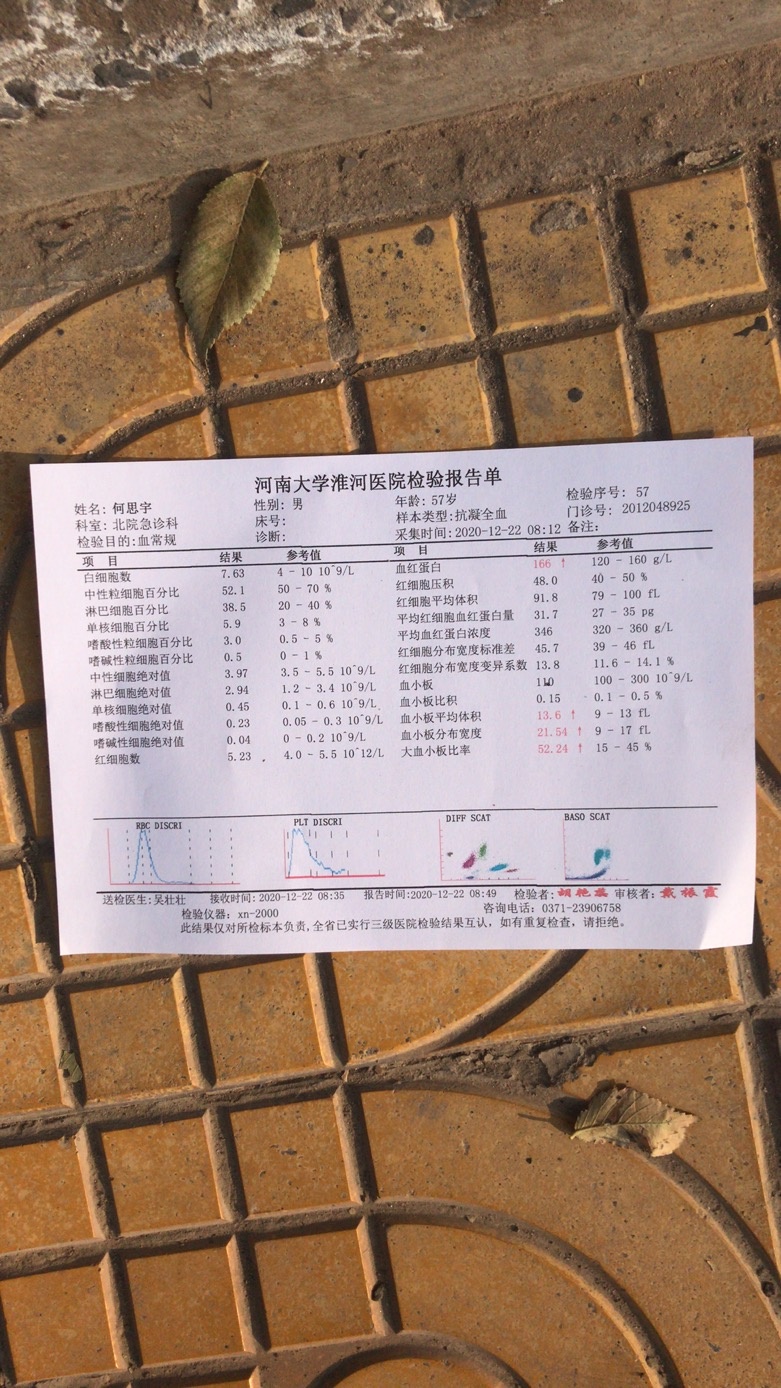 河南大学淮河医院检验报告单
姓名: 何思宇 性别: 男 年龄: 57岁 检验序号: 57
科室: 北院急诊科 床号: 样本类型:抗凝全血 门诊号: 2012048925
检验目的:血常规 诊断: 采集时间:2020-12-22 08:12 备注:
项 目 结果 参考值 项 目 结果 参考值
白细胞数 7.63 4 - 10 10^9/L 血红蛋白 166 ↑ 120 - 160 g/L
中性粒细胞百分比 52.1 50 - 70 % 红细胞压积 48.0 40 - 50 %
淋巴细胞百分比 38.5 20 - 40 % 红细胞平均体积 91.8 79 - 100 fL
单核细胞百分比 5.9 3 - 8 % 平均红细胞血红蛋白量 31.7 27 - 35 pg
嗜酸性粒细胞百分比 3.0 0.5 - 5 % 平均血红蛋白浓度 346 320 - 360 g/L
嗜碱性粒细胞百分比 0.5 0 - 1 % 红细胞分布宽度标准差 45.7 39 - 46 fL
中性细胞绝对值 3.97 3.5 - 5.5 10^9/L 红细胞分布宽度变异系数 13.8 11.6 - 14.1 %
淋巴细胞绝对值 2.94 1.2 - 3.4 10^9/L 血小板 110 100 - 300 10^9/L
单核细胞绝对值 0.45 0.1 - 0.6 10^9/L 血小板比积 0.15 0.1 - 0.5 %
嗜酸性细胞绝对值 0.23 0.05 - 0.3 10^9/L 血小板平均体积 13.6 ↑ 9 - 13 fL
嗜碱性细胞绝对值 0.04 0 - 0.2 10^9/L 血小板分布宽度 21.54 ↑ 9 - 17 fL
红细胞数 5.23 4.0 - 5.5 10^12/L 大血小板比率 52.24 ↑ 15 - 45 %
RBC DISCRI PLT DISCRI DIFF SCAT BASO SCAT
送检医生:吴壮壮 接收时间:2020-12-22 08:35 报告时间:2020-12-22 08:49 检验者: 审核者:戴振霞
检验仪器: xn-2000 咨询电话: 0371-23906758
此结果仅对所检标本负责,全省已实行三级医院检验结果互认, 如有重复检查, 请拒绝。